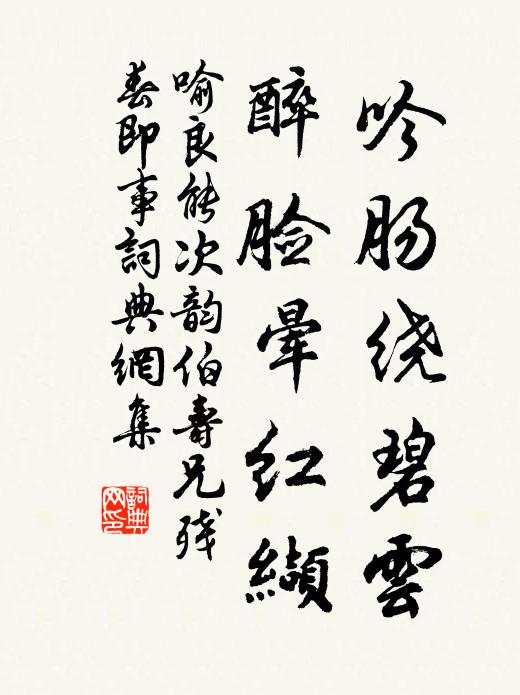 吟肠绕碧雲
醉脸暈红纈
喻良能次韵伯壽兄残
春即事詞典網集
詞典
网印